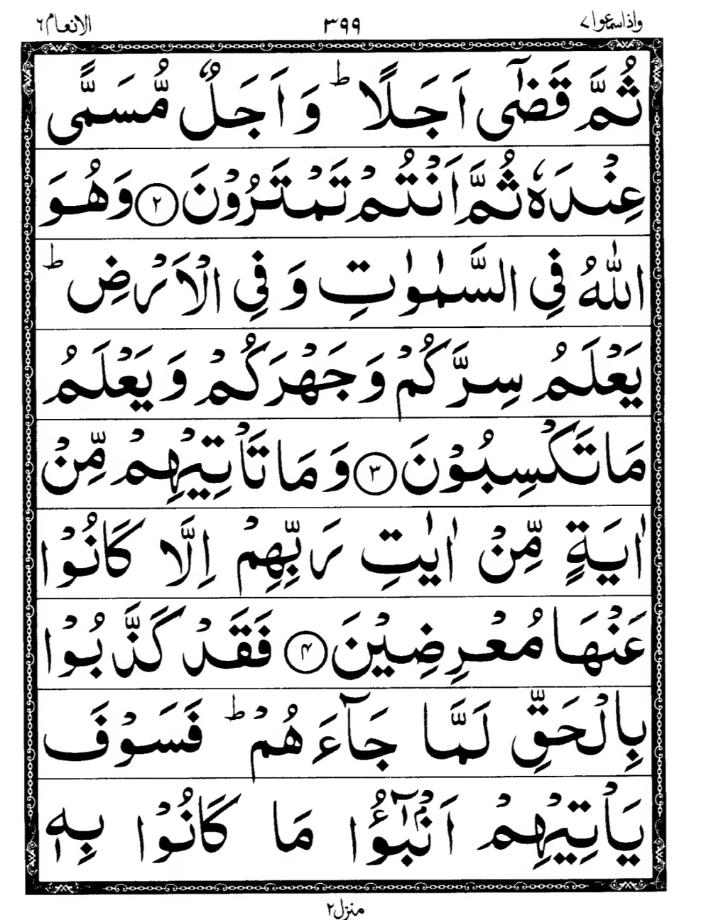 واذاسمعوا ٧ ٣٩٩ الانعام ٦
ثُمَّ قَضٰۤى اَجَلًا ؕ وَ اَجَلٌ مُّسَمًّى
عِنْدَهٗ ثُمَّ اَنْتُمْ تَمْتَرُوْنَ ۝۲ وَ هُوَ
اللّٰهُ فِی السَّمٰوٰتِ وَ فِی الْاَرْضِ ؕ
یَعْلَمُ سِرَّكُمْ وَ جَهْرَكُمْ وَ یَعْلَمُ
مَا تَكْسِبُوْنَ ۝۳ وَ مَا تَاْتِیْهِمْ مِّنْ
اٰیَةٍ مِّنْ اٰیٰتِ رَبِّهِمْ اِلَّا كَانُوْا
عَنْهَا مُعْرِضِیْنَ ۝۴ فَقَدْ كَذَّبُوْا
بِالْحَقِّ لَمَّا جَآءَهُمْ ؕ فَسَوْفَ
یَاْتِیْهِمْ اَنْۢبٰٓؤُا مَا كَانُوْا بِهٖ
منزل ٢